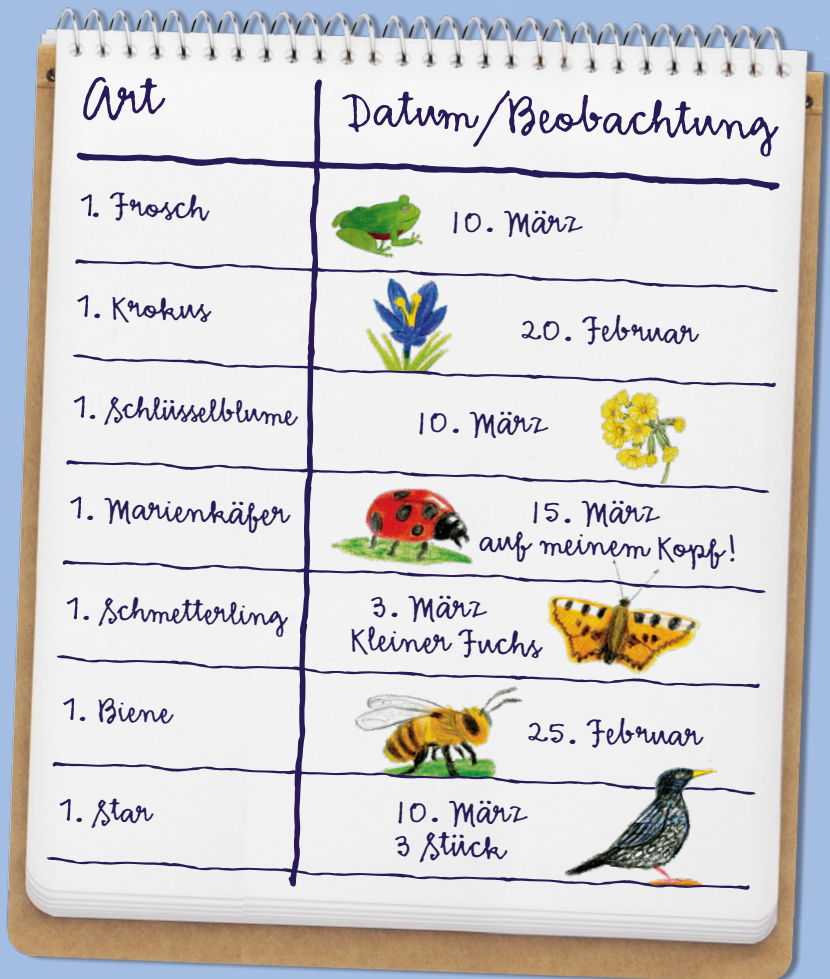 Art
Datum/Beobachtung
1. Frosch
10. März
1. Krokus
20. Februar
1. Schlüsselblume
10. März
1. Marienkäfer
15. März
auf meinem Kopf!
1. Schmetterling
3. März
Kleiner Fuchs
1. Biene
25. Februar
1. Star
10. März
3 Stück